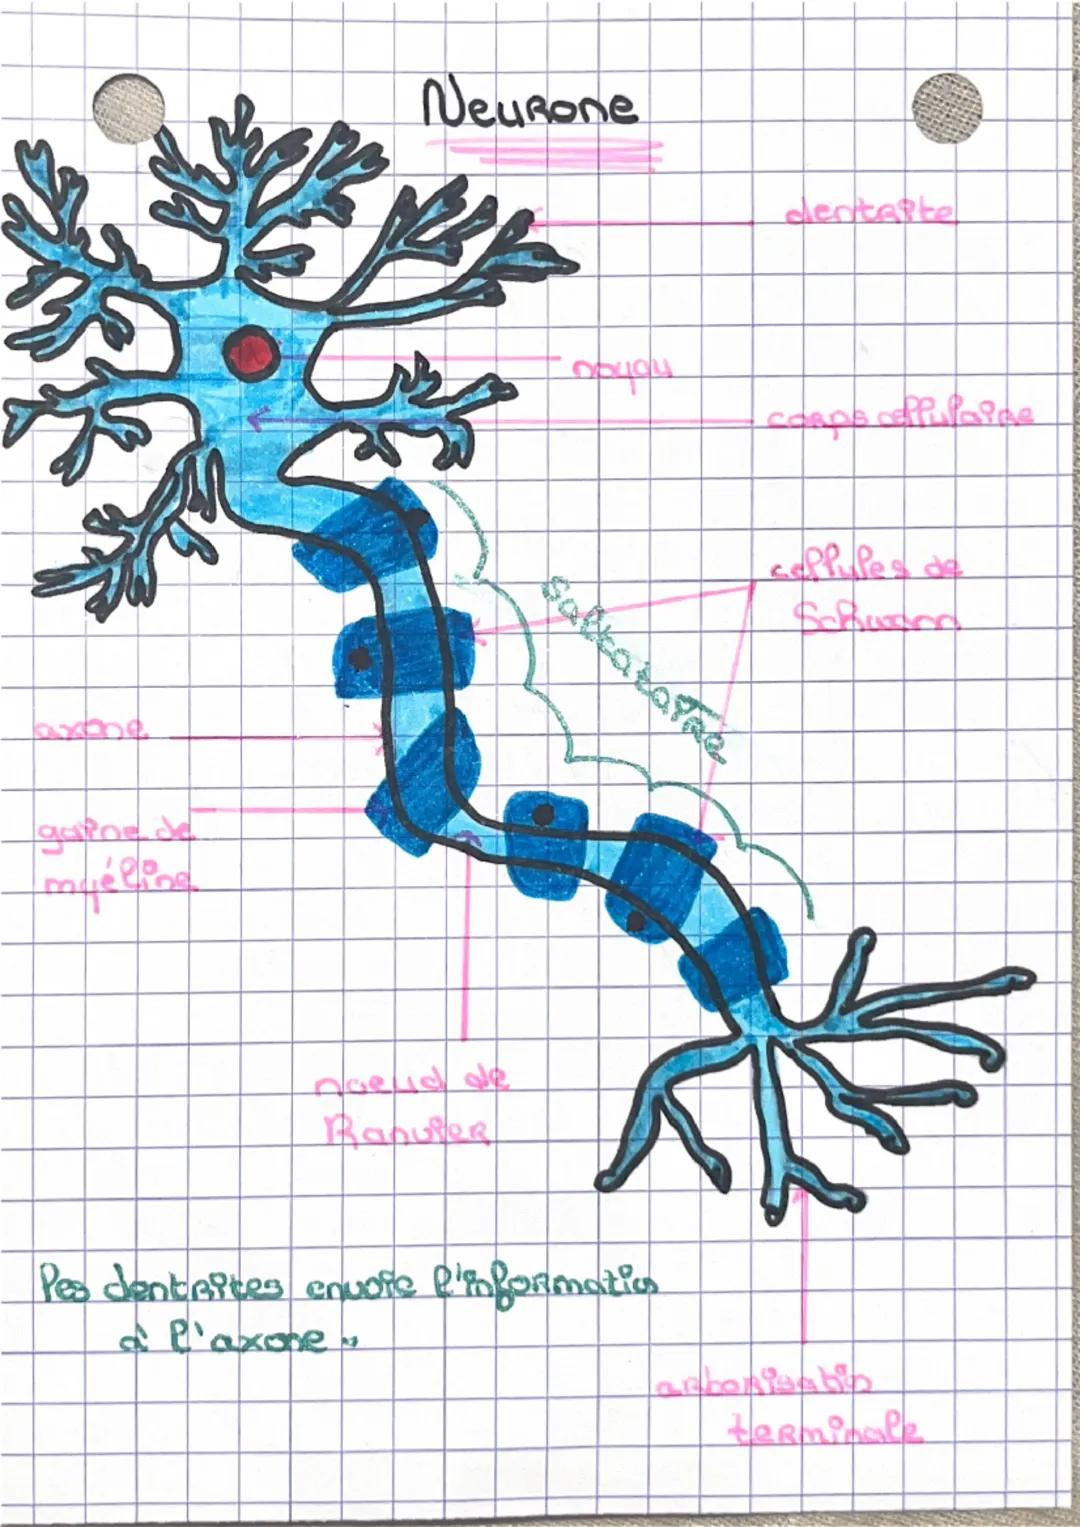 Neurone
dentrite
noyau
corps cellulaire
cellules de
Schwann
saltatoire
axone
gaine de
myéline
noeud de
Ranvier
les dentrites envoie l'information
à l'axone.
arborisation
terminale